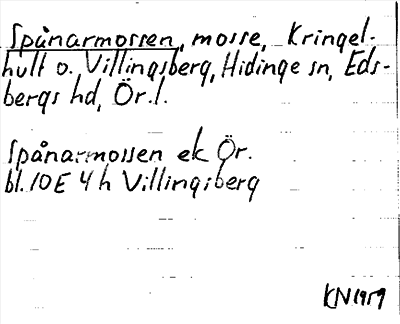 Spånarmossen, mosse, Kringel-
hult o. Villingsberg, Hidinge sn, Eds-
bergs hd, Ör.l.
Spånarmossen ek Ör.
bl. 10E 4h Villingsberg
KN 1959